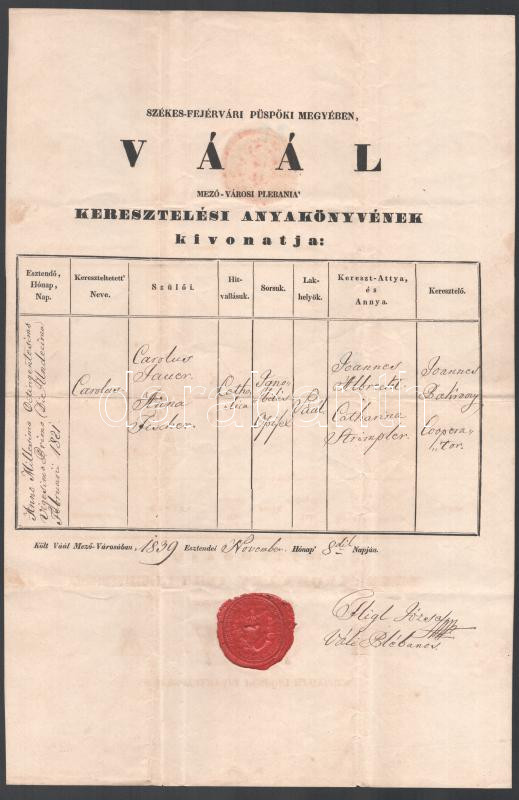 SZÉKES-FEJÉRVÁRI PÜSPÖKI MEGYÉBEN,
VÁÁL
MEZŐ-VÁROSI PLEBANIA'
KERESZTELÉSI ANYAKÖNYVÉNEK
kivonatja:
Esztendő,
Hónap,
Nap.
Kereszteltetett'
Neve.
Szülői.
Hit-
vallásuk.
Sorsuk.
Lak-
helyök.
Kereszt-Attya,
és
Annya.
Keresztelő.
Anno Millesimo Octingentesimo
Vigesimo Primo, Die Undecima
Februarii 1821
Carolus
Carolus
Sauer.
Anna
Fischer.
Catho-
lica
Igno-
biles
Opifex
Vaál
Joannes
Albrecht
Catharina
Strimpler.
Joannes
Coopera-
tor.
Költ Váál Mező-Városában, 1839 Esztendei November. Hónap' 8dik Napján.
Fligl József
Váli Plébános.
darabanth